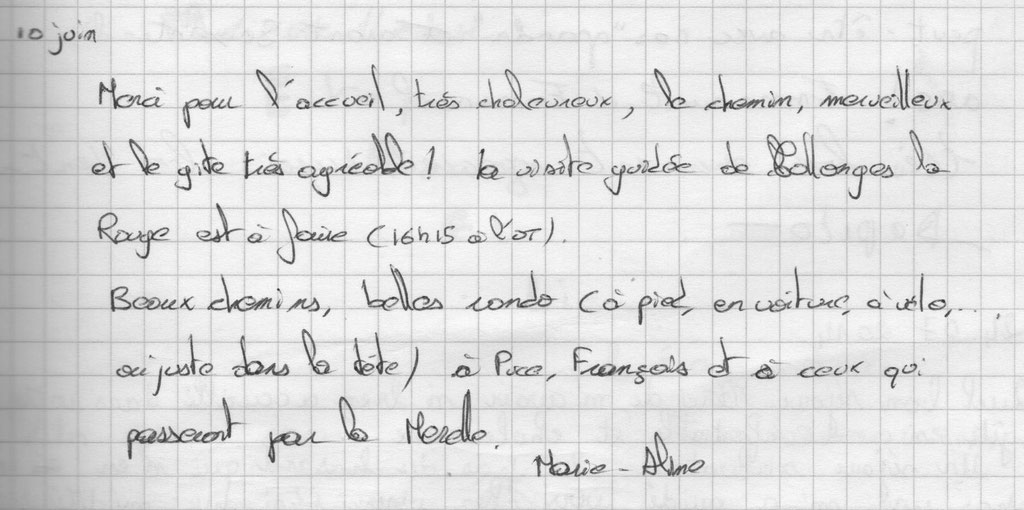 10 juin
Merci pour l'accueil, très chaleureux, le chemin, merveilleux
et le gite très agréable ! la visite guidée de Collonges la
Rouge est à faire (16h15 à l'OT).
Beaux chemins, belles rando (à pied, en voiture, à vélo,...,
ou juste dans la tête) à Puce, François et à ceux qui
passeront par la Merelle.
Marie-Aline